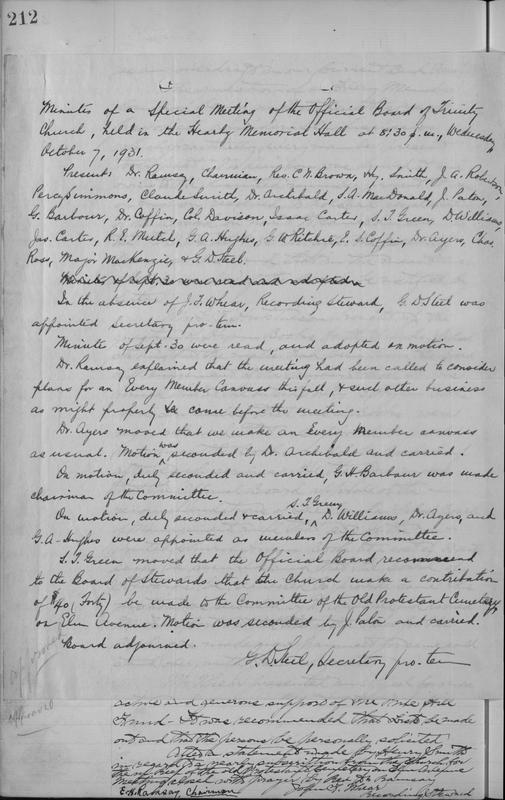 212
Minutes of a Special Meeting of the Official Board of Trinity
Church, held in the Heartz Memorial Hall at 8:30 p.m., Wednesday,
October 7, 1931.
Present: Dr. Ramsay, Chairman, Rev. C.N. Brown, Hy. Smith, J. A. Robertson,
Percy Simmons, Claude Smith, Dr. Archibald, S.A. MacDonald, J. Paton,
G. Barbour, Dr. Coffin, Col. Davison, Isaac Carter, S. T. Green, D. Williams,
Jas. Carter, R. E. Mutch, G. A. Hughes, G. W. Ritchie, E. S. Coffin, Dr. Ayers, Chas.
Ross, Major Mackenzie, & G D Steel.
Minutes of Sept. 30 were read and adopted
In the absence of J. F. Whear, Recording Steward, G. D Steel was
appointed Secretary pro-tem.
Minute of Sept. 30 were read, and adopted on motion.
Dr. Ramsay explained that the meeting had been called to consider
plans for an Every Member Canvass this fall, & such other business
as might properly come before the meeting.
Dr. Ayers moved that we make an Every Member canvass
as usual. Motion was seconded by D. Archibald and carried.
On motion, duly seconded and carried, G. H Barbour was made
chairman of the Committee.
On motion, duly seconded & carried, S. T Green, D. Williams, Dr. Ayers, and
G. A. Hughes were appointed as members of the Committee.
S. T. Green moved that the Official Board recommend
to the Board of Stewards that the Church make a contribution
of $40 (Forty) be made to the Committee of the Old Protestant Cemetery
on Elm Avenue. Motion was seconded by J. Paton and carried.
Board adjourned.
G. D Steel, Secretary pro-tem
approved
approved
active and generous support of the
Fund - It was recommended that lists be made
out and that the persons be personally solicited
After a statement made by Henry Smith
in regard to a yearly subscription from the Church for
the upkeep of the old Protestant Cemetery
meeting closed with prayer by Rev Dr Ramsay
E. A. Ramsay Chairman
John F Whear
Recording Steward